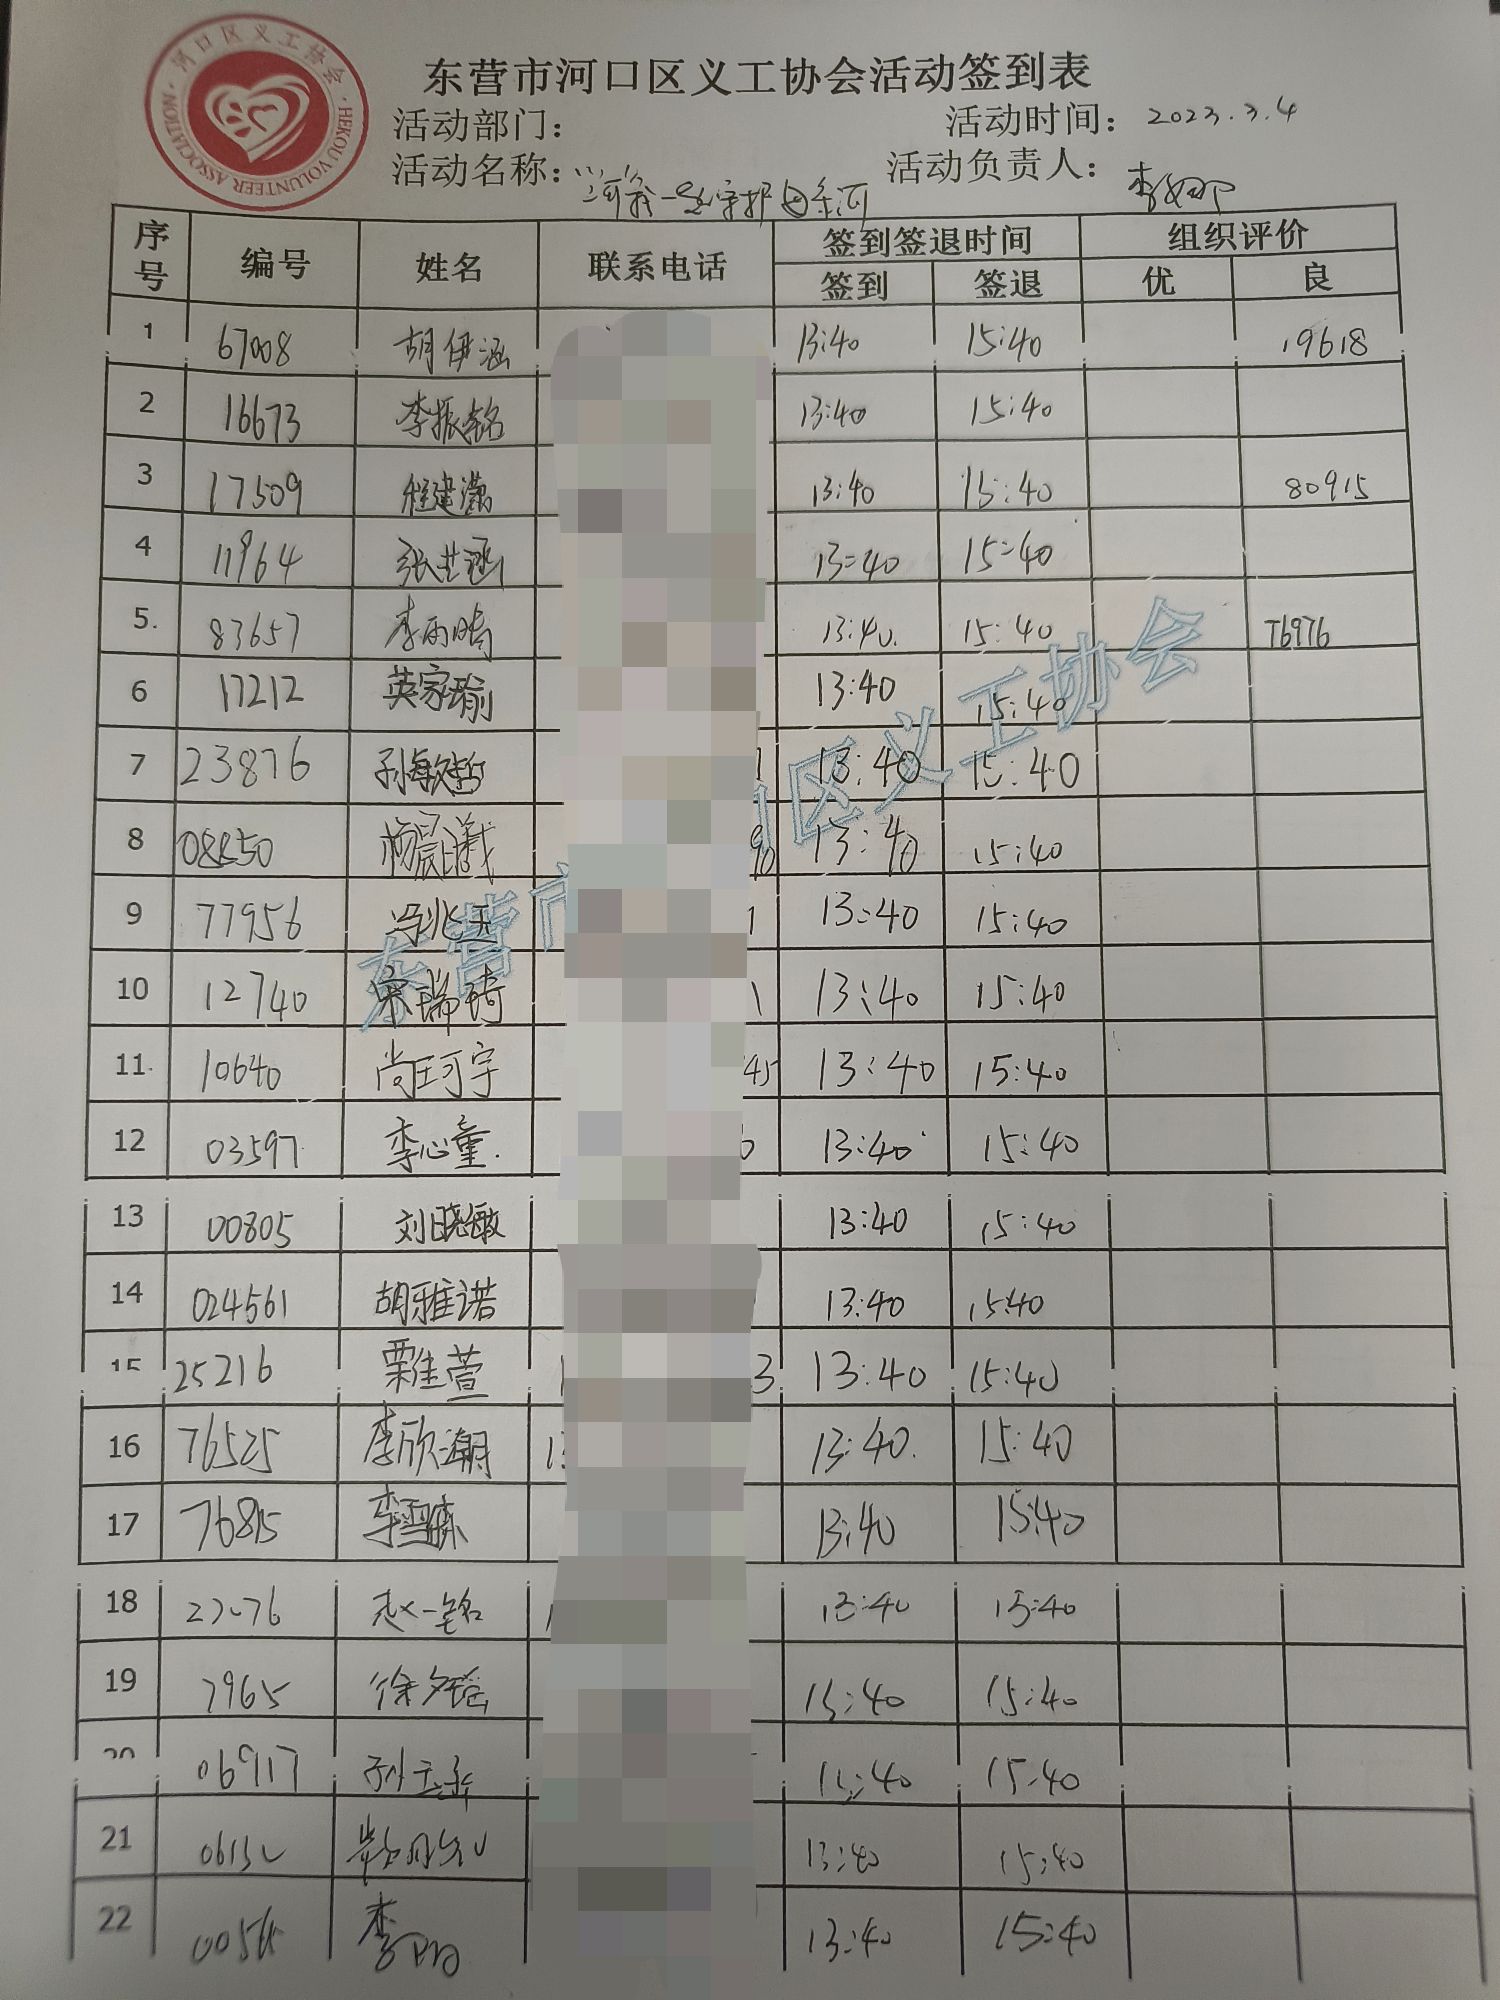 河口区义工协会
HEKOU VOLUNTEER ASSOCIATION
东营市河口区义工协会活动签到表
活动部门：
活动时间：2023.3.4
活动名称：
活动负责人：李娜
序号 编号 姓名 联系电话 签到签退时间 组织评价
签到 签退 优 良
1 67008 胡伊涵 13:40 15:40 19618
2 16673 李振铭 13:40 15:40
3 17509 程建潇 13:40 15:40 80915
4 11964 张芷涵 13:40 15:40
5. 83657 李雨晴 13:40. 15:40 76976
6 17212 英家瑜 13:40 15:40
7 23876 孙敏哲 1 13:40 15:40
8 杨晨曦 90 13:40 15:40
9 77956 冯兆玉 1 13:40 15:40
10 12740 宋瑞琦 1 13:40 15:40
11. 10640 尚珂宇 45 13:40 15:40
12 03597 李心童. 13:40 15:40
13 00805 刘晓敏 13:40 15:40
14 024561 胡雅诺 13:40 15:40
15 25216 栗佳萱 3 13:40 15:40
16 76525 李欣潮 13:40. 15:40
17 76815 李雪 13:40 15:40
18 赵一铭 13:40 15:40
19 7965 徐夕瑶 13:40 15:40
20 06917 孙 15:40
21 13:40 15:40
22 李 13:40 15:40
东营市 口区义工协会